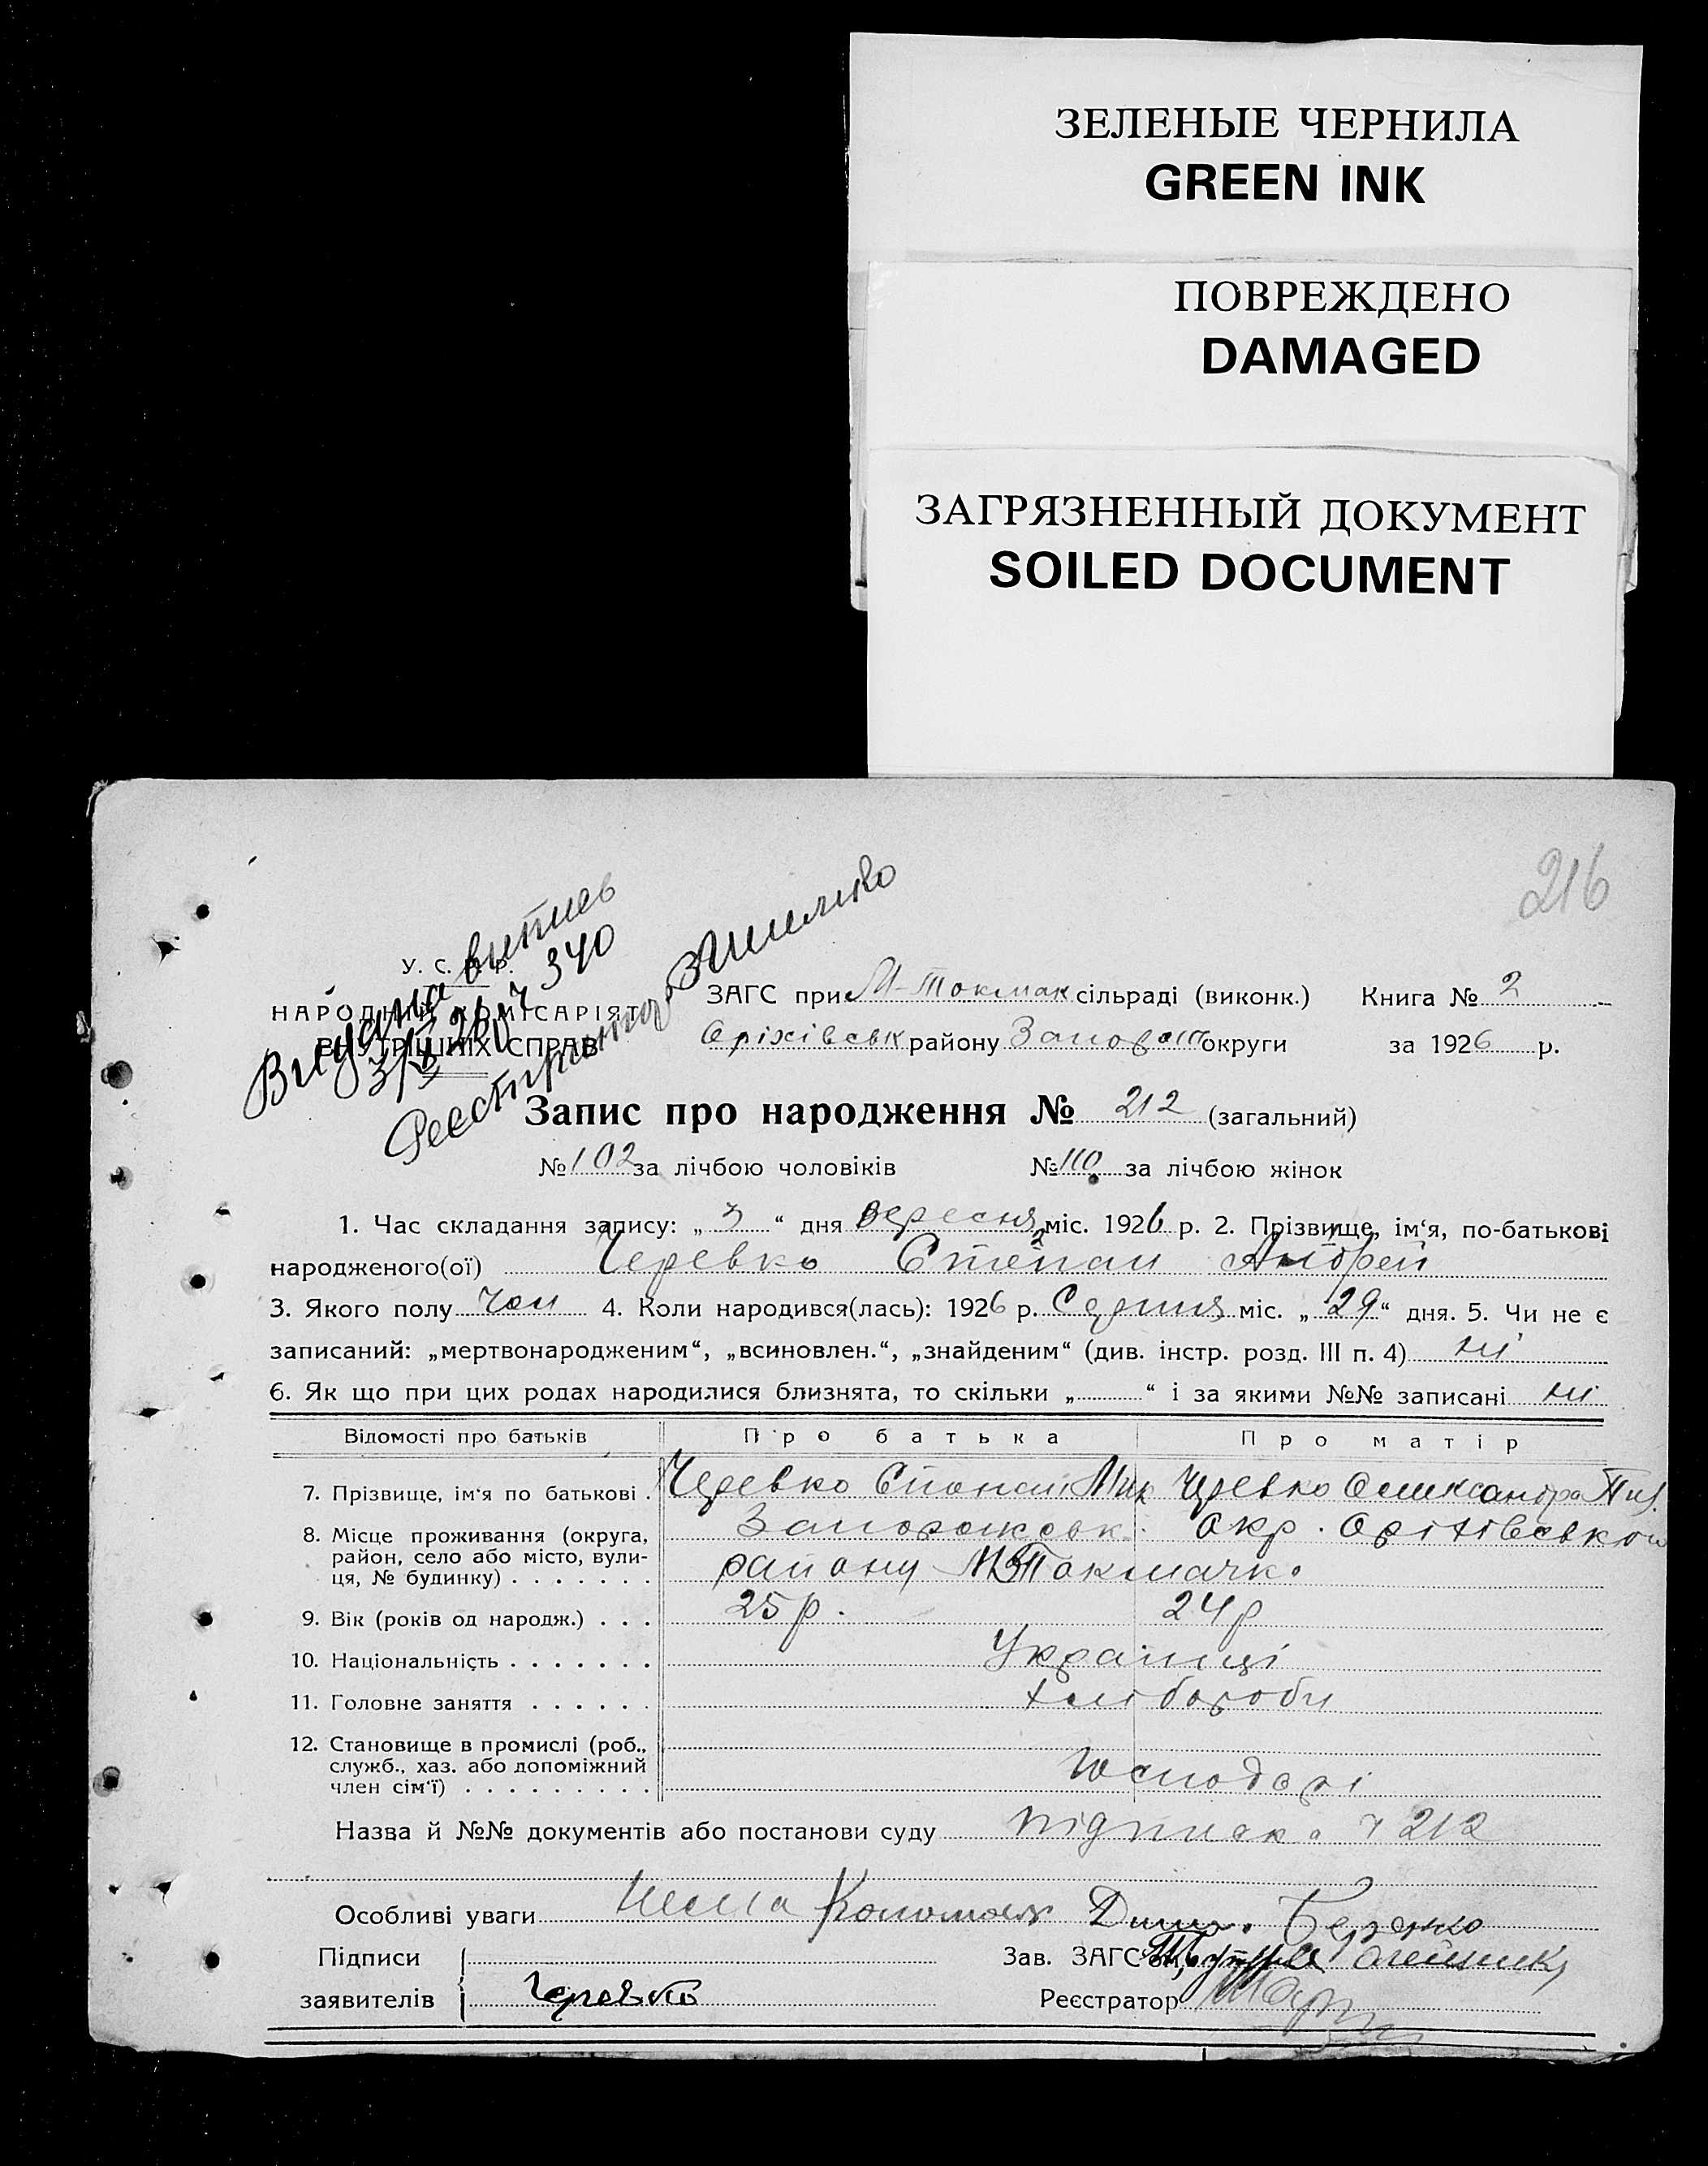 ЗЕЛЕНЫЕ ЧЕРНИЛА
GREEN INK
ПОВРЕЖДЕНО
DAMAGED
ЗАГРЯЗНЕННЫЙ ДОКУМЕНТ
SOILED DOCUMENT
216
У. С. Р. Р.
НАРОДНИЙ КОМІСАРІЯТ
ВНУТРІШНІХ СПРАВ
Видана витись
340
ЗАГС при М-Токмак сільраді (виконк.) Книга № 2
Оріхівськ району Запорож округи за 1926 р.
Запис про народження № 212 (загальний)
№ 102 за лічбою чоловіків № 110 за лічбою жінок
1. Час складання запису: „ 3 “ дня вересня міс. 1926 р. 2. Прізвище, ім‘я, по-батькові
народженого(ої) Черевко Степан Андрей
3. Якого полу чол 4. Коли народився(лась): 1926 р. Серпня міс. „ 29 “ дня. 5. Чи не є
записаний: „мертвонародженим“, „всиновлен.“, „знайденим“ (див. інстр. розд. III п. 4) ні
6. Як що при цих родах народилися близнята, то скільки „ “ і за якими №№ записані ні
Відомості про батьків Про батька Про матір
7. Прізвище, ім‘я по батькові . Черевко Степан Мик Черевко Олександра
8. Місце проживання (округа, Запорожськ. Окр. Оріхівського
район, село або місто, вули- району М Токмачк.
ця, № будинку) . . . . . . .
9. Вік (років од народж.) . . . 25 р. 24 р
10. Національність . . . . . . . Українці
11. Головне заняття . . . . . . Хлібороби
12. Становище в промислі (роб.,
служб., хаз. або допоміжний
член сім‘ї) . . . . . . . . . Господарі
Назва й №№ документів або постанови суду підписка ч 212
Особливі уваги
Підписи
заявителів Черевко
Зав. ЗАГС‘ом
Реєстратор